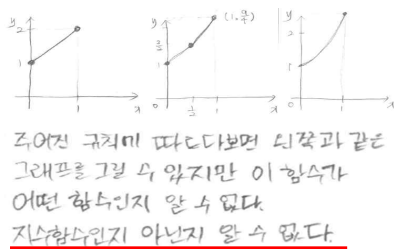 y 2 1 0 1 x
y 3/2 1 0 1/2 1 x (1, 9/4)
y 2 1 0 1 x
주어진 규칙에 따르다보면 왼쪽과 같은
그래프를 그릴 수 있지만 이 함수가
어떤 함수인지 알 수 없다.
지수함수인지 아닌지 알 수 없다.